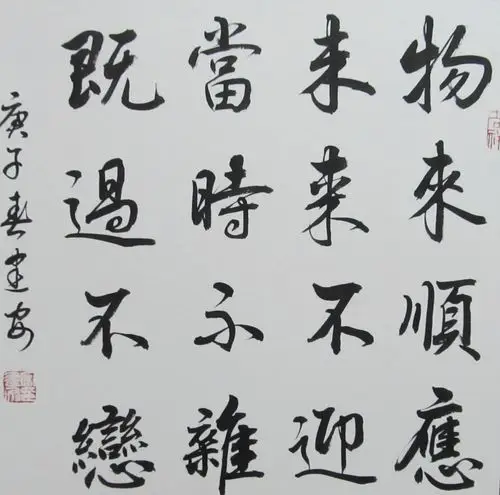 物來順應
未來不迎
當時不雜
既過不戀
庚子春建安